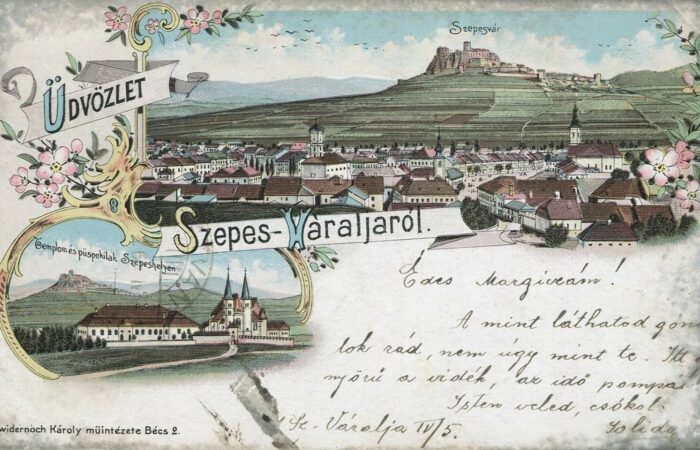 Szepesvár
ÜDVÖZLET
Szepes-Váraljaról.
Templom és püspökilak Szepeshelyen
Édes Margiczám!
A mint láthatod gon
lok rád, nem úgy mint te. Itt
nyörű a vidék, az idő pompa
Isten veled, csókol
Sz-Váralja IV/5.
widernoch Károly müintézete Bécs 2.